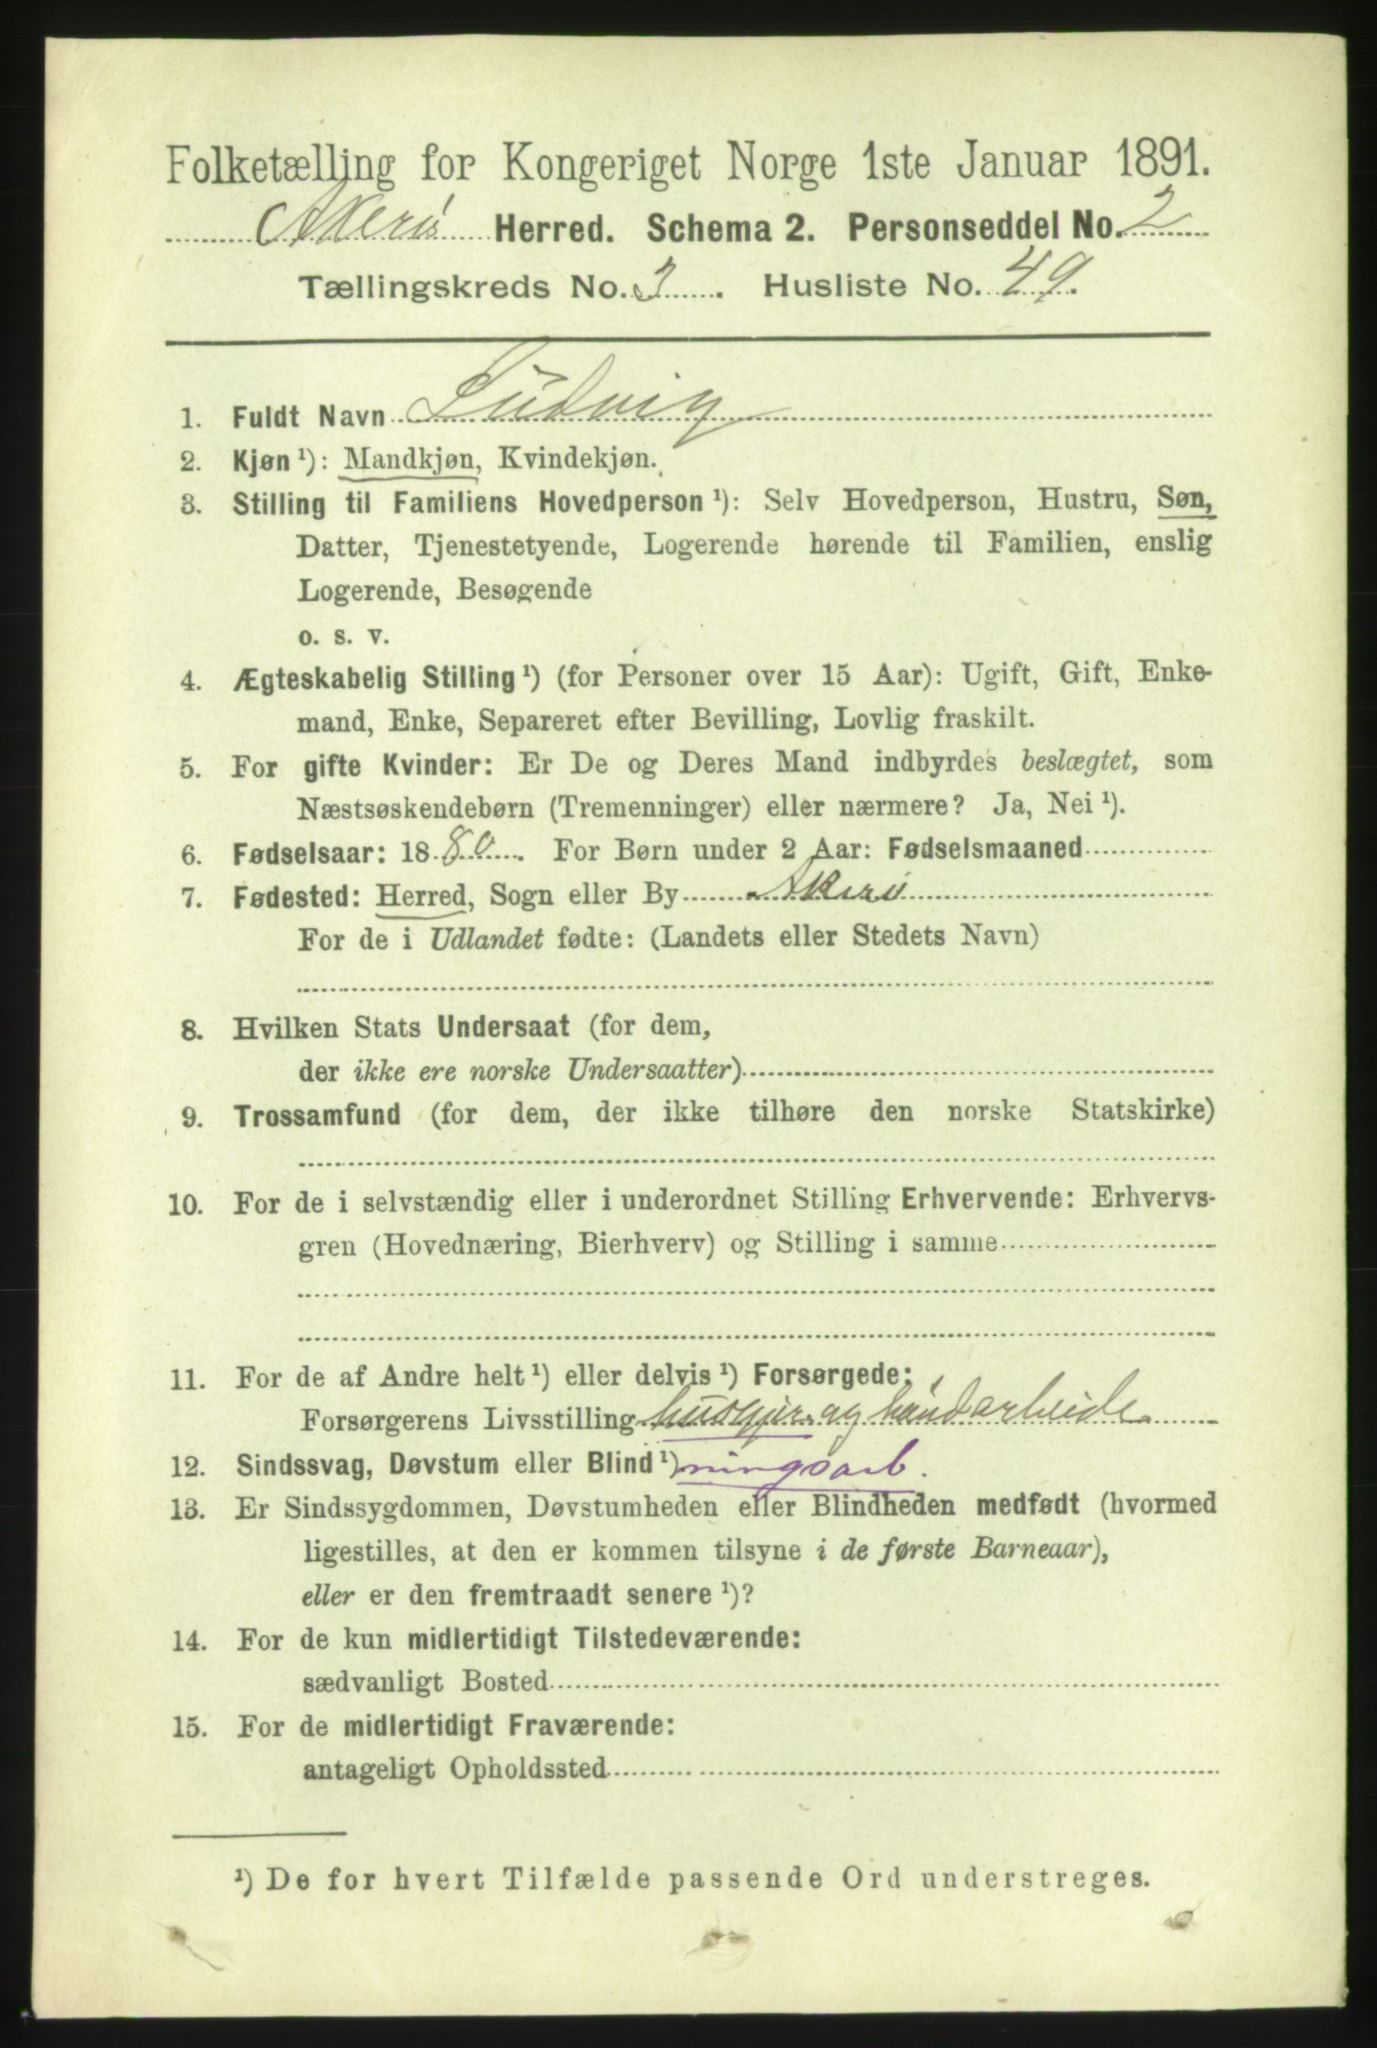 Folketælling for Kongeriget Norge 1ste Januar 1891.
Akerø Herred. Schema 2. Personseddel No. 2
Tællingskreds No. 3. Husliste No. 49.
1. Fuldt Navn Ludvig
2. Kjøn ¹): Mandkjøn, Kvindekjøn.
3. Stilling til Familiens Hovedperson ¹): Selv Hovedperson, Hustru, Søn,
Datter, Tjenestetyende, Logerende hørende til Familien, enslig
Logerende, Besøgende
o. s. v.
4. Ægteskabelig Stilling ¹) (for Personer over 15 Aar): Ugift, Gift, Enke-
mand, Enke, Separeret efter Bevilling, Lovlig fraskilt.
5. For gifte Kvinder: Er De og Deres Mand indbyrdes beslægtet, som
Næstsøskendebørn (Tremenninger) eller nærmere? Ja, Nei ¹).
6. Fødselsaar: 1880. For Børn under 2 Aar: Fødselsmaaned
7. Fødested: Herred, Sogn eller By Akerø
For de i Udlandet fødte: (Landets eller Stedets Navn)
8. Hvilken Stats Undersaat (for dem,
der ikke ere norske Undersaatter)
9. Trossamfund (for dem, der ikke tilhøre den norske Statskirke)
10. For de i selvstændig eller i underordnet Stilling Erhvervende: Erhvervs-
gren (Hovednæring, Bierhverv) og Stilling i samme
11. For de af Andre helt ¹) eller delvis ¹) Forsørgede:
Forsørgerens Livsstilling husgjer. og håndarbeide
12. Sindssvag, Døvstum eller Blind ¹) ningsarb.
13. Er Sindssygdommen, Døvstumheden eller Blindheden medfødt (hvormed
ligestilles, at den er kommen tilsyne i de første Barneaar),
eller er den fremtraadt senere ¹)?
14. For de kun midlertidigt Tilstedeværende:
sædvanligt Bosted
15. For de midlertidigt Fraværende:
antageligt Opholdssted
¹) De for hvert Tilfælde passende Ord understreges.